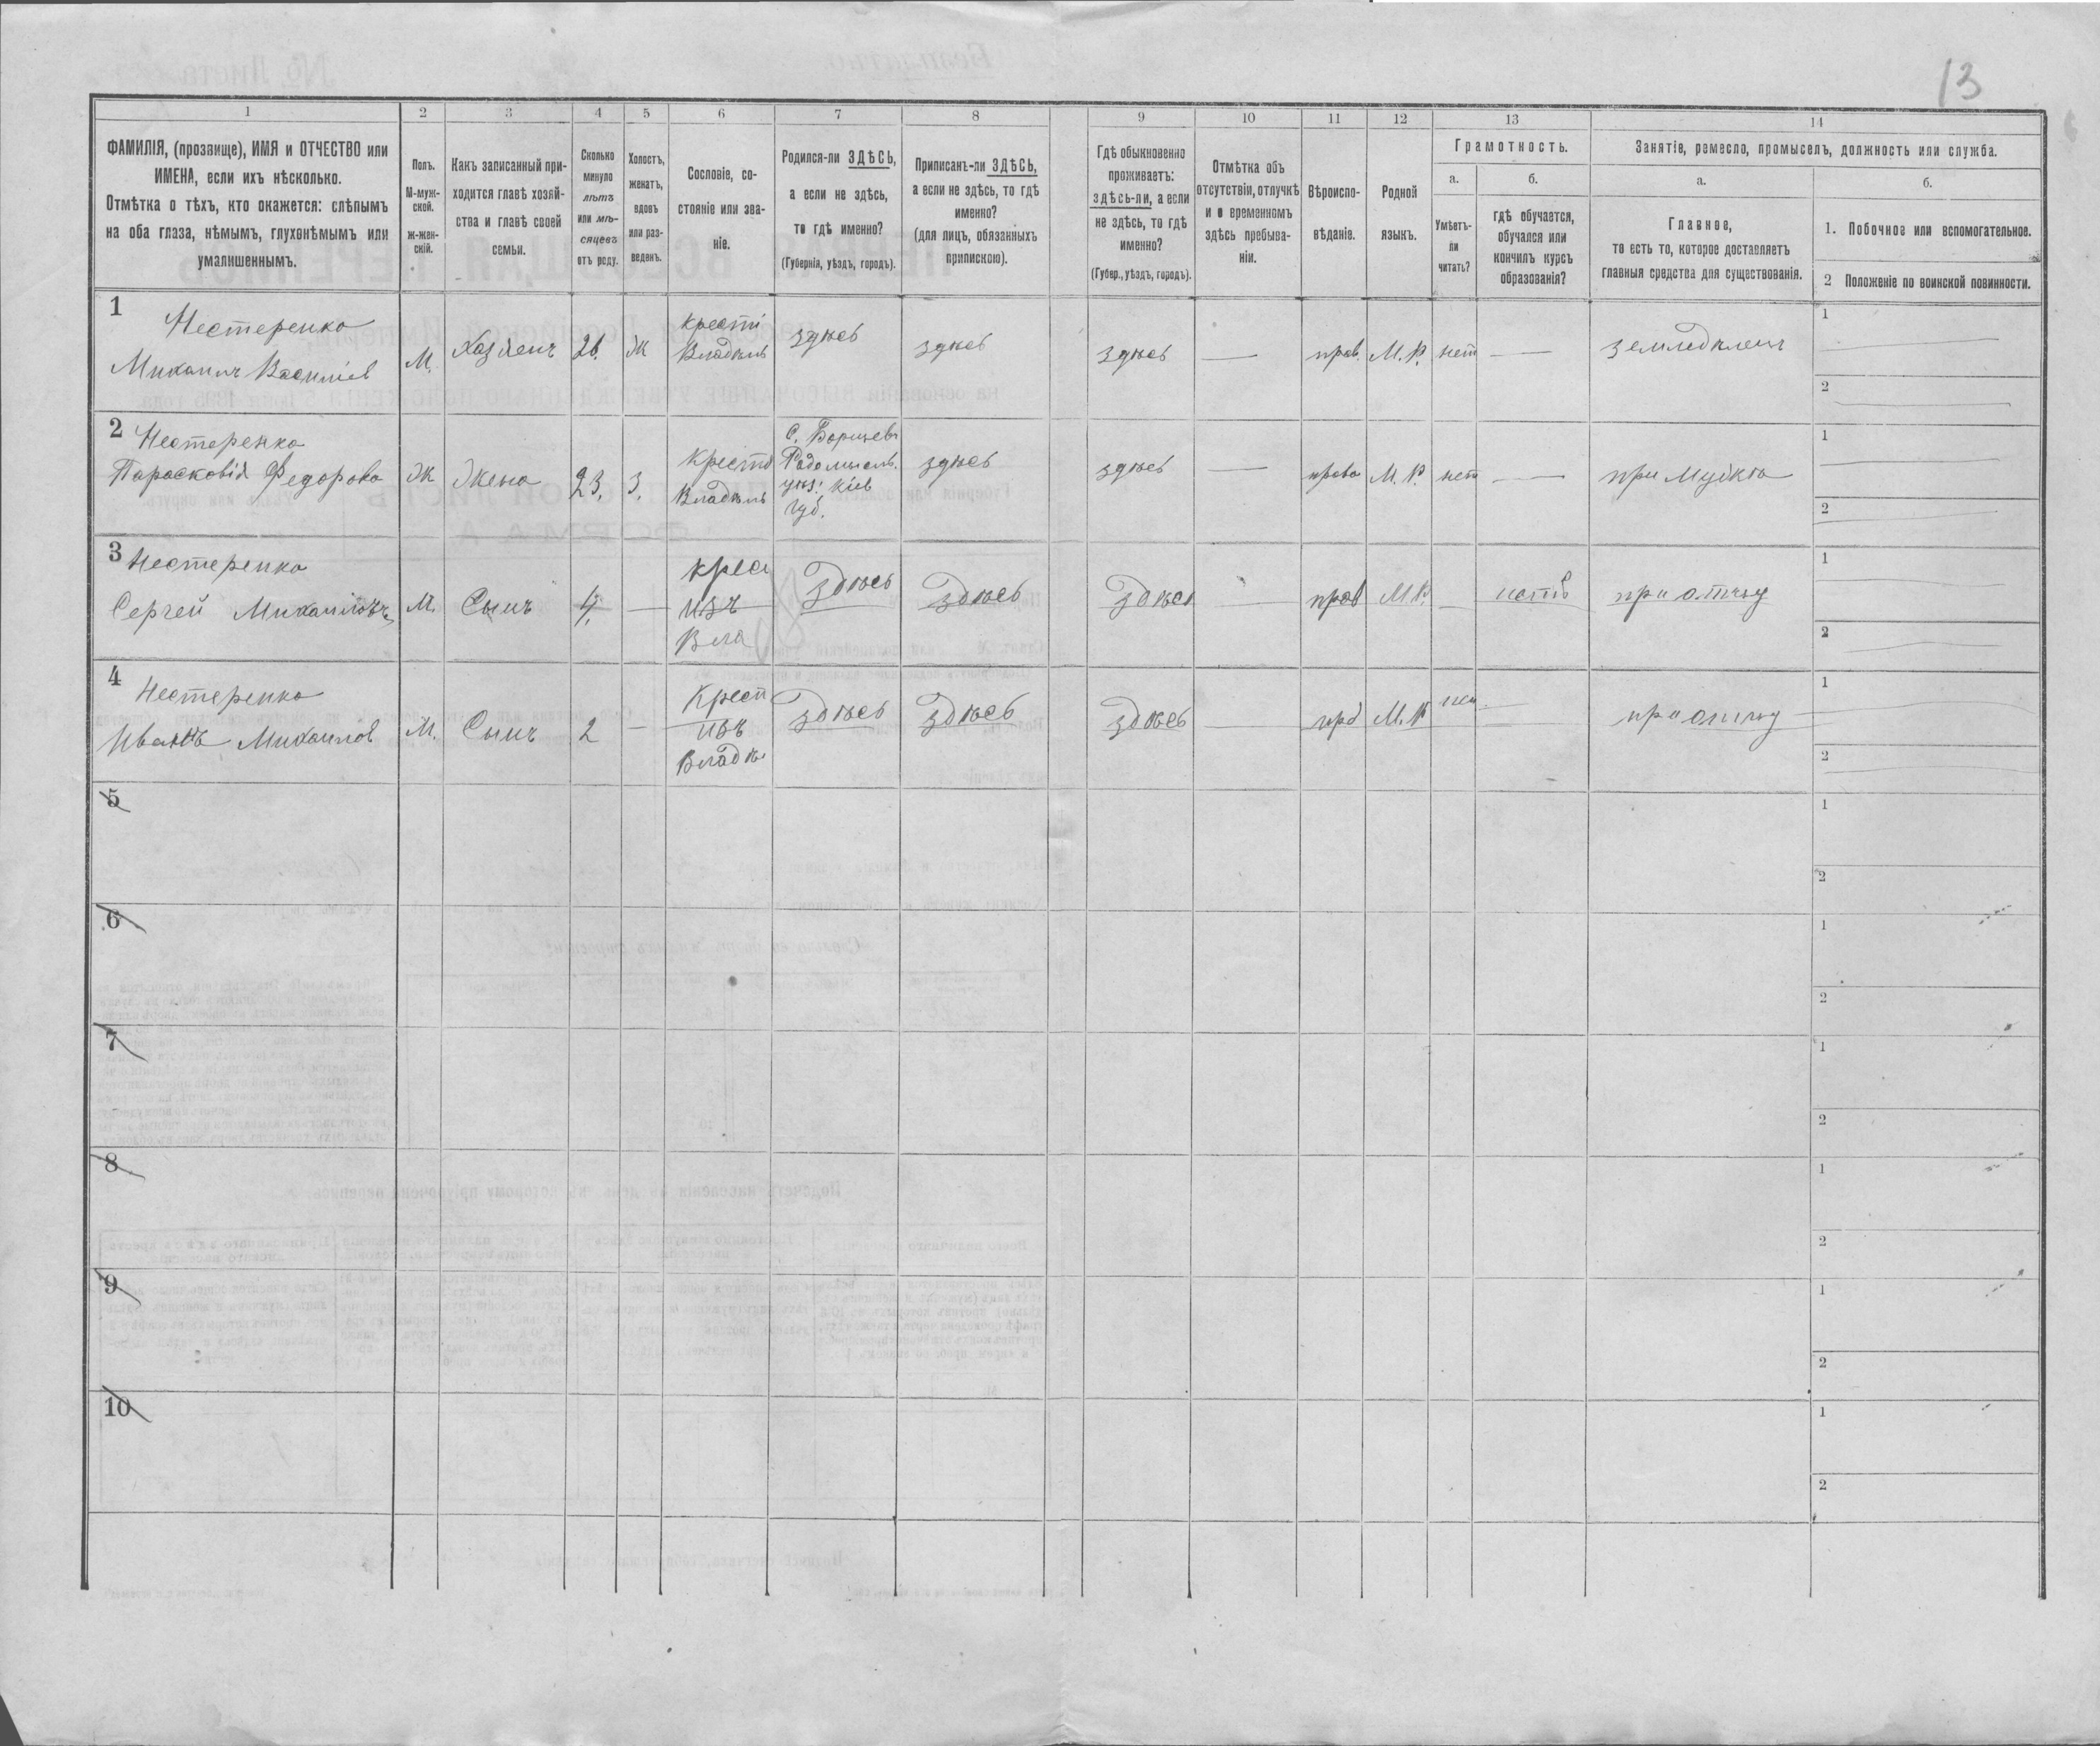 13
1
2
3
4
5
6
7
8
9
10
11
12
13
14
ФАМИЛІЯ, (прозвище), ИМЯ и ОТЧЕСТВО или
ИМЕНА, если ихъ нѣсколько.
Отмѣтка о тѣхъ, кто окажется: слѣпымъ
на оба глаза, нѣмымъ, глухонѣмымъ или
умалишеннымъ.
Полъ.
М-муж-
ской.
ж-жен-
скій.
Какъ записанный при-
ходится главѣ хозяй-
ства и главѣ своей
семьи.
Сколько
минуло
лѣтъ
или мѣ-
сяцевъ
отъ роду.
Холостъ,
женатъ,
вдовъ
или раз-
веденъ.
Сословіе, со-
стояніе или зва-
ніе.
Родился-ли ЗДѢСЬ,
а если не здѣсь,
то гдѣ именно?
(Губернія, уѣздъ, городъ).
Приписанъ-ли ЗДѢСЬ,
а если не здѣсь, то гдѣ
именно?
(для лицъ, обязанныхъ
припискою).
Гдѣ обыкновенно
проживаетъ:
здѣсь-ли, а если
не здѣсь, то гдѣ
именно?
(Губер., уѣздъ, городъ).
Отмѣтка объ
отсутствіи, отлучкѣ
и о временномъ
здѣсь пребыва-
ніи.
Вѣроиспо-
вѣданіе.
Родной
языкъ.
Грамотность.
а.
Умѣетъ-
ли
читать?
б.
гдѣ обучается,
обучался или
кончилъ курсъ
образованія?
Занятіе, ремесло, промыселъ, должность или служба.
а.
Главное,
то есть то, которое доставляетъ
главныя средства для существованія.
б.
1. Побочное или вспомогательное.
2 Положеніе по воинской повинности.
1
Нестеренко
Михаилъ Василіев
М.
Хазяенъ
26
Ж
Кресті
Владѣль
здѣсь
здѣсь
здѣсь
—
прав.
М. Р.
нет
—
земледѣлецъ
1
2
2
Нестеренко
Парасковія Федорова
Ж
Жена
23.
З.
Владѣль
С.
Радомысль.
уѣз: Кіев
губ.
здѣсь
здѣсь
—
права
М. Р.
нет
—
при
1
2
3
Нестеренко
Сергей
М.
Сынъ
4.
—
Крес
изъ
Вла
Здѣсь
Здѣсь
Здѣсь
—
прав
М. Р.
—
при отцу
1
2
4
Нестеренко
Иванъ Михаилов
М.
Сынъ
2
—
Крест
изъ
Владѣ
Здѣсь
Здѣсь
Здѣсь
—
прв
М. Р
—
при отцу
1
2
5
1
2
6
1
2
7
1
2
8
1
2
9
1
2
10
1
2